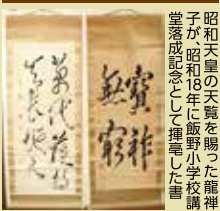 昭和天皇の天覧を賜った龍禅
子が、昭和18年に飯野小学校講
堂落成記念として揮毫した書
寶祚
無窮